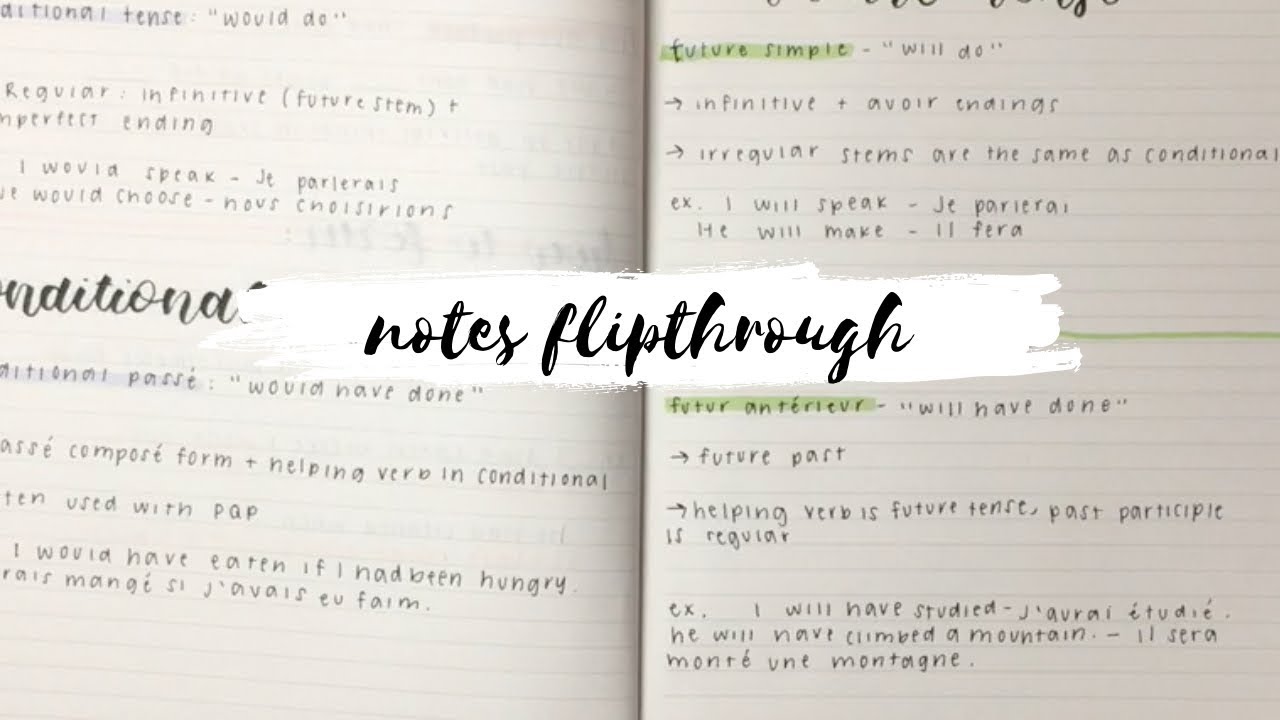 ditional tense: "would do"
Regular: infinitive (future stem) +
mperfect ending
I would speak - Je parlerais
we would choose - nous choisirions
onditiona
ditional passé: "would have done"
assé composé form + helping verb in conditional
ten used with PQP
I would have eaten if I had been hungry.
rais mangé si j'avais eu faim.
notes flipthrough
future simple - "will do"
→ infinitive + avoir endings
→ irregular stems are the same as conditional
ex. I will speak - Je parlerai
He will make - Il fera
futur antérieur - "will have done"
→ future past
→ helping verb is future tense, past participle
is regular
ex. I will have studied - J'aurai étudié.
he will have climbed a mountain. - Il sera
monté une montagne.